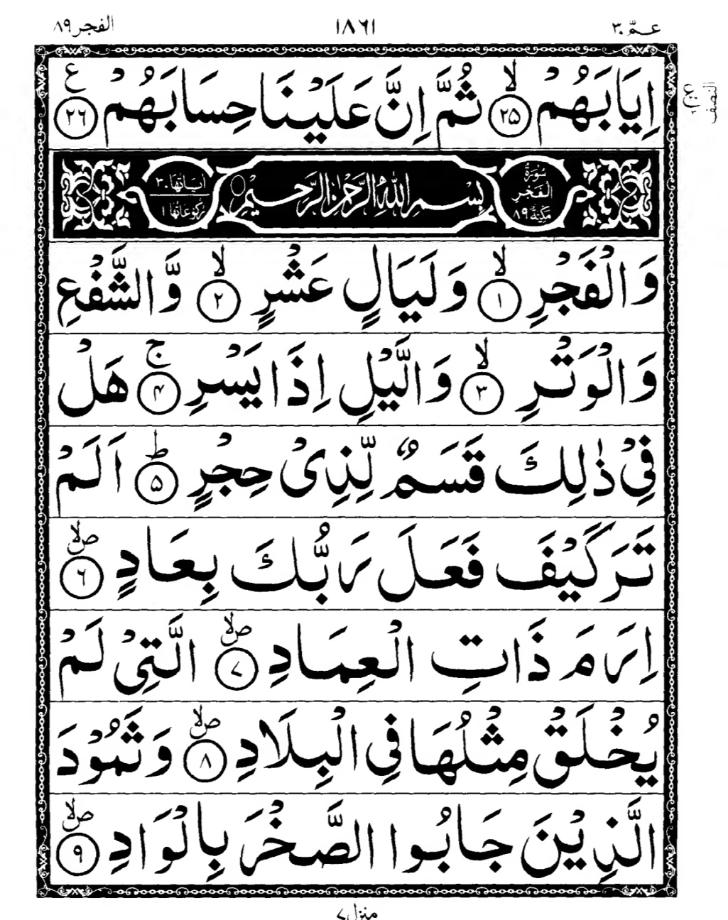 عـمّ ٣٠ ١٨٦١ الفجر ٨٩
اِيَابَهُمْ ۙ‏ ﴿۲۵﴾ ثُمَّ اِنَّ عَلَيْنَا حِسَابَهُمْ ﴿۲۶﴾ ع
النصف
سُوْرَةُ الْفَجْرِ مَكِّيَّةٌ ٨٩ بِسْمِ اللهِ الرَّحْمٰنِ الرَّحِيْمِ اٰيَاتُهَا ٣٠ رُكُوْعَاتُهَا ١
وَالْفَجْرِ ۙ‏ ﴿۱﴾ وَلَيَالٍ عَشْرٍ ۙ‏ ﴿۲﴾ وَّالشَّفْعِ
وَالْوَتْرِ ۙ‏ ﴿۳﴾ وَالَّيْلِ اِذَا يَسْرِ ۚ‏ ﴿۴﴾ هَلْ
فِيْ ذٰلِكَ قَسَمٌ لِّذِيْ حِجْرٍ ؕ‏ ﴿۵﴾ اَلَمْ
تَرَ كَيْفَ فَعَلَ رَبُّكَ بِعَادٍ ۪ۙ‏ ﴿۶﴾
اِرَمَ ذَاتِ الْعِمَادِ ۪ۙ‏ ﴿۷﴾ الَّتِيْ لَمْ
يُخْلَقْ مِثْلُهَا فِي الْبِلَادِ ۪ۙ‏ ﴿۸﴾ وَثَمُوْدَ
الَّذِيْنَ جَابُوا الصَّخْرَ بِالْوَادِ ۪ۙ‏ ﴿۹﴾
منزل ٧